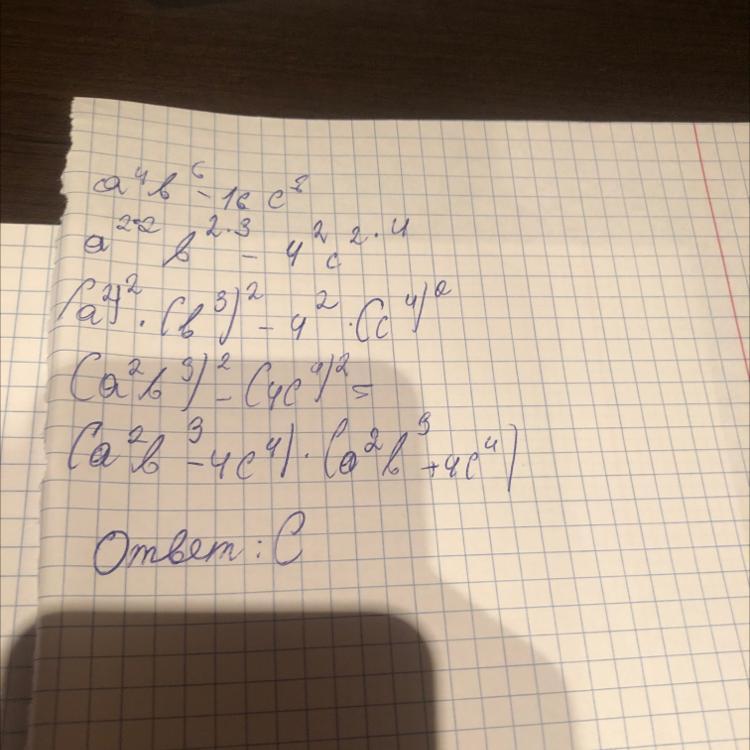 a⁴b⁶ - 16c⁸
a²·² b²·³ - 4² c²·⁴
(a²)² · (b³)² - 4² · (c⁴)²
(a²b³)² - (4c⁴)² =
(a²b³ - 4c⁴) · (a²b³ + 4c⁴)
Ответ: C